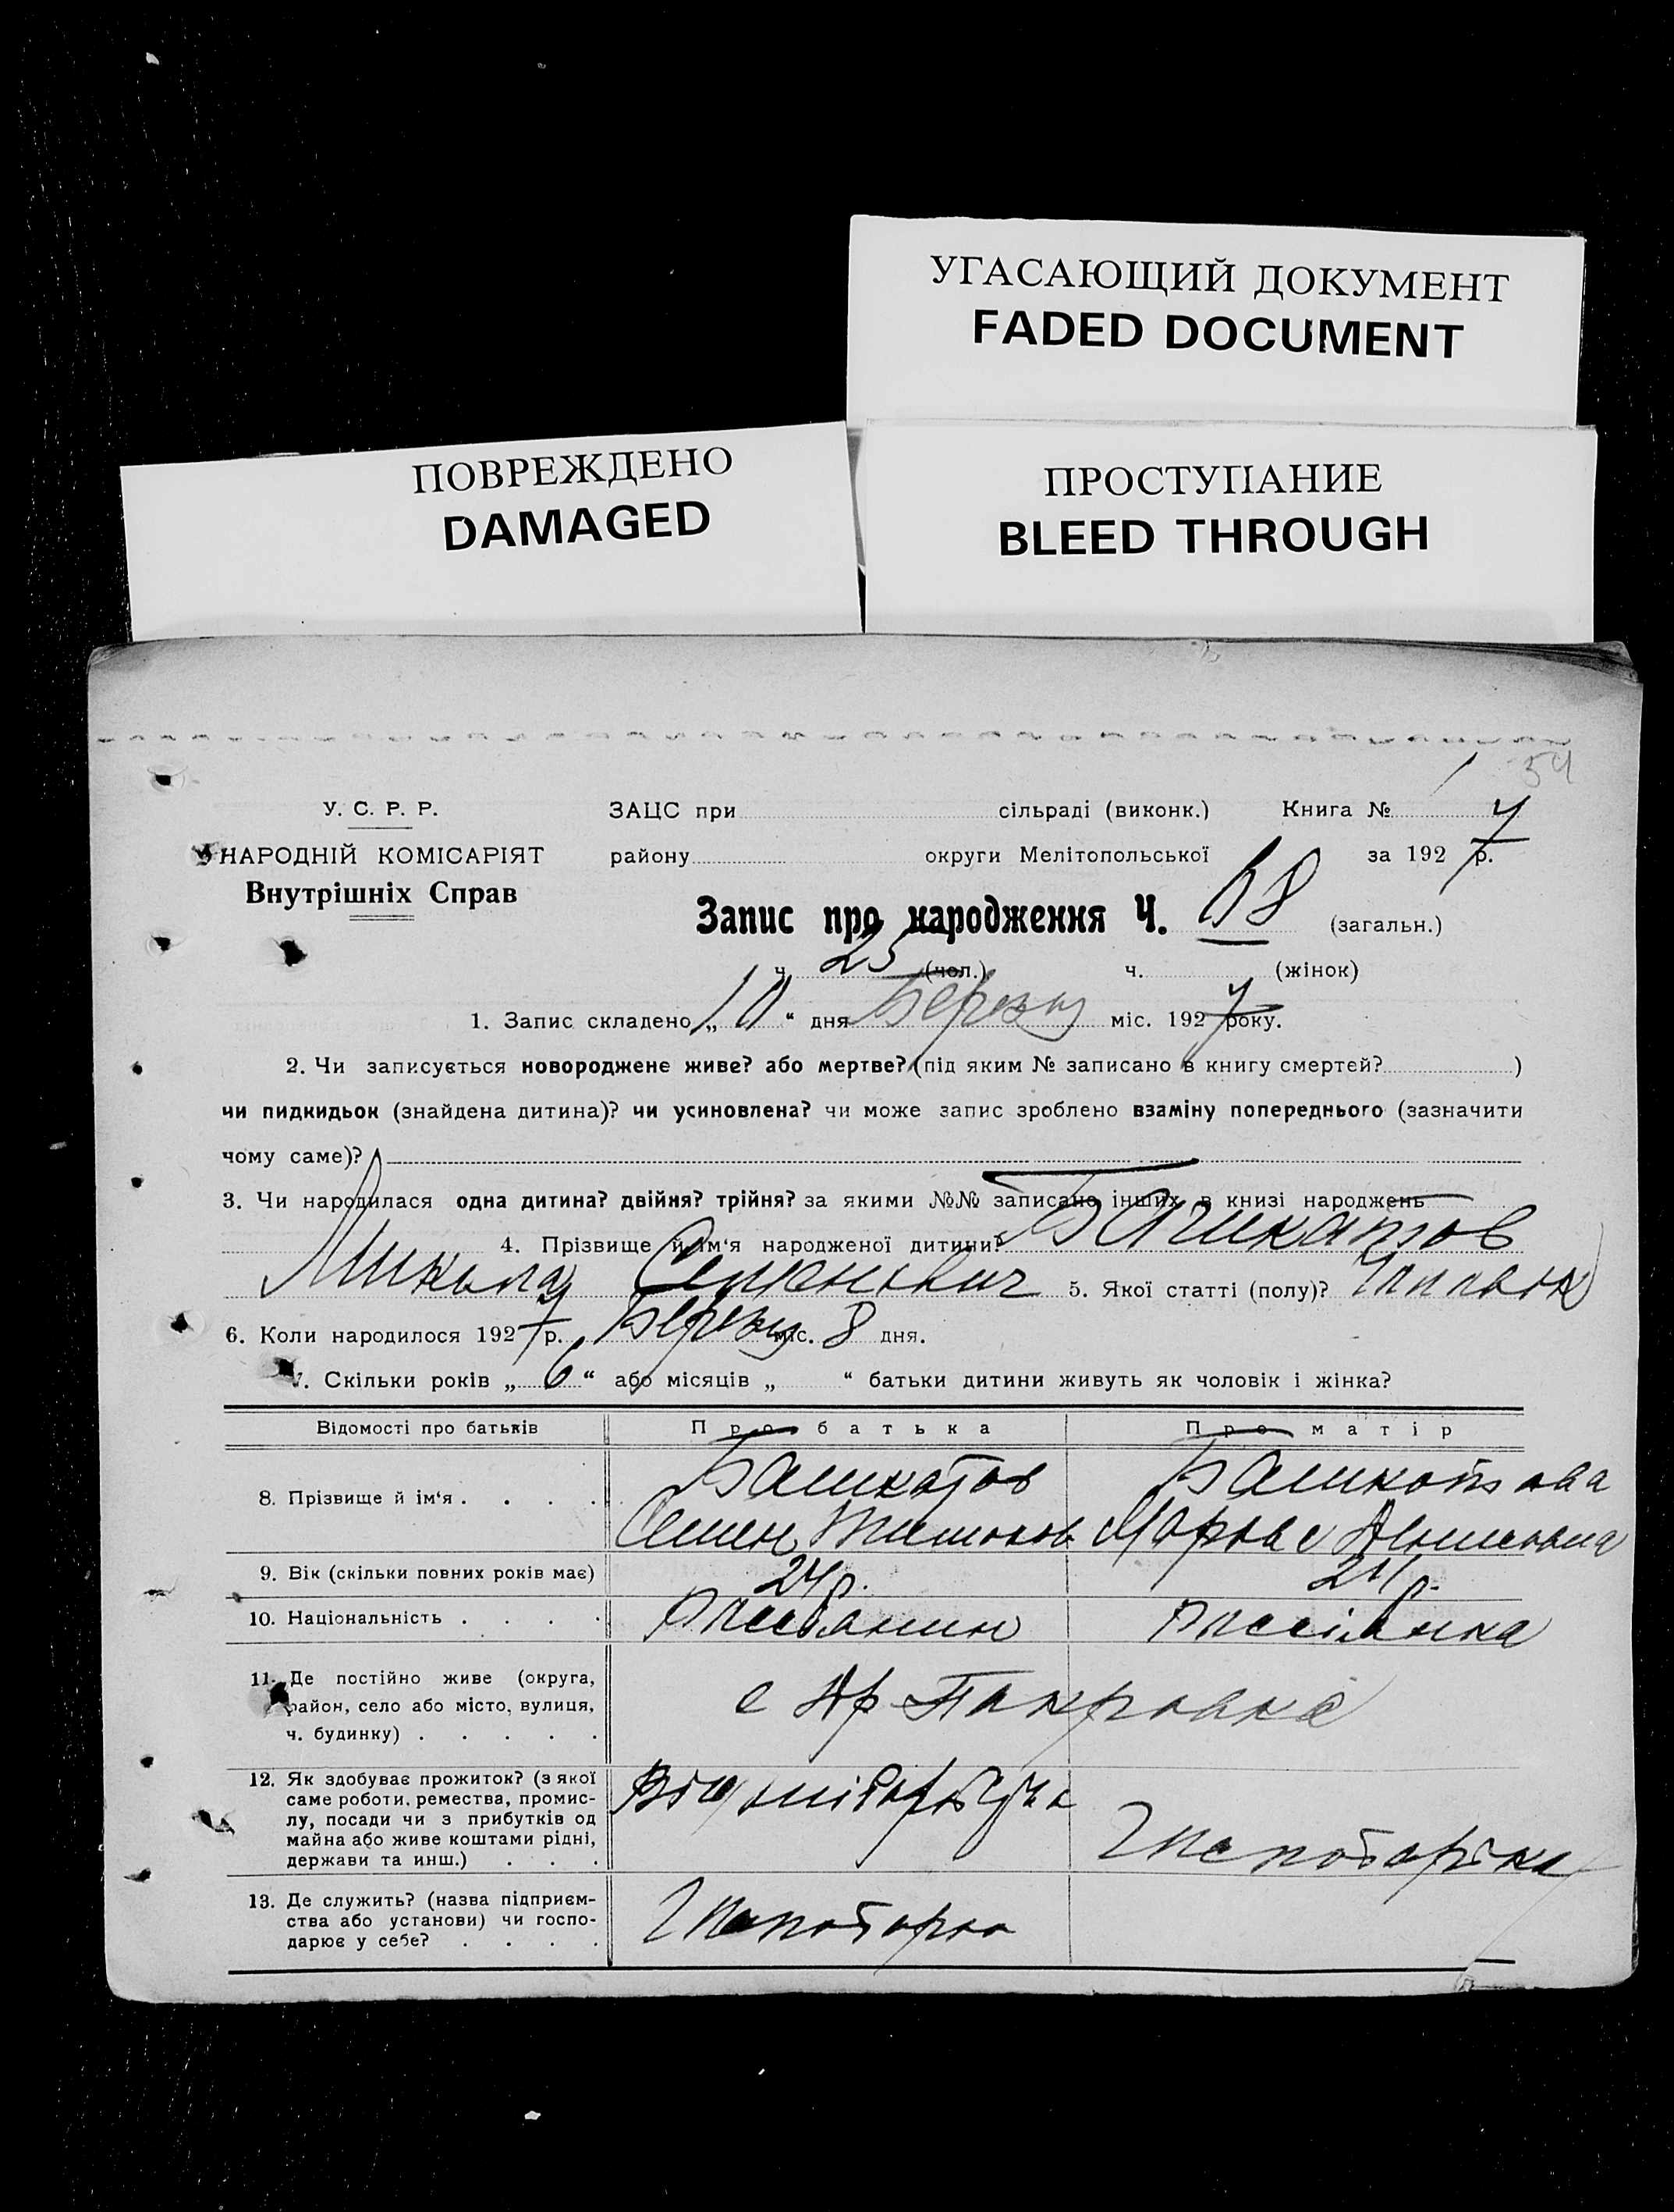 УГАСАЮЩИЙ ДОКУМЕНТ
FADED DOCUMENT
ПОВРЕЖДЕНО
DAMAGED
ПРОСТУПАНИЕ
BLEED THROUGH
54
У. С. Р. Р.
НАРОДНІЙ КОМІСАРІЯТ
Внутрішніх Справ
ЗАЦС при сільраді (виконк.) Книга №
району округи Мелітопольської за 1927 р.
Запис про народження Ч. 58 (загальн.)
ч. 25 (чол.) ч. (жінок)
1. Запис складено „10“ дня Березня міс. 1927 року.
2. Чи записується новороджене живе? або мертве? (під яким № записано в книгу смертей? )
чи пидкидьок (знайдена дитина)? чи усиновлена? чи може запис зроблено взаміну попереднього (зазначити
чому саме)?
3. Чи народилася одна дитина? двійня? трійня? за якими №№ записано інших в книзі народжень
4. Прізвище й ім‘я народженої дитини? Башкатов
Микола Семенович 5. Якої статті (полу)? Чоловік
6. Коли народилося 1927 р. Березня міс. 8 дня.
7. Скільки років „6“ або місяців „ “ батьки дитини живуть як чоловік і жінка?
Відомості про батьків Про батька Про матір
8. Прізвище й ім‘я . . . . Башкатов Башкатова
Семен Марфа
9. Вік (скільки повних років має) 24 р. 24 р.
10. Національність . . . .
11. Де постійно живе (округа,
район, село або місто, вулиця,
ч. будинку) . . . . .
с Покровка
12. Як здобуває прожиток? (з якої
саме роботи, ремества, промис-
лу, посади чи з прибутків од
майна або живе коштами рідні,
держави та инш.) . . .
Хлепоборка
13. Де служить? (назва підприєм-
ства або установи) чи госпо-
дарює у себе? . . . .